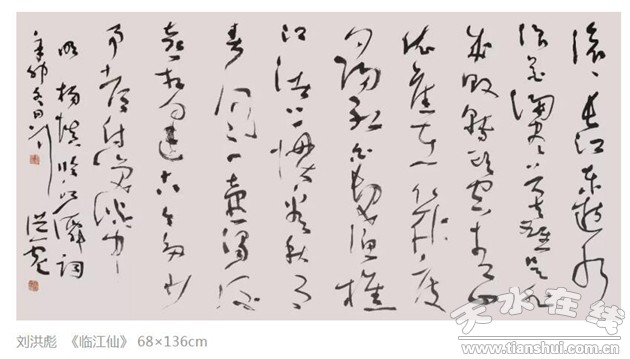 滚滚长江东逝水
浪花淘尽英雄是非
成败转头空青山
依旧在几度
夕阳红白发渔樵
江渚上惯看秋月
春风一壶浊酒
喜相逢古今多少
事都付笑谈中
明杨慎临江仙词
辛卯冬月
洪彪
天水在线
www.tianshui.com.cn
刘洪彪 《临江仙》 68×136cm